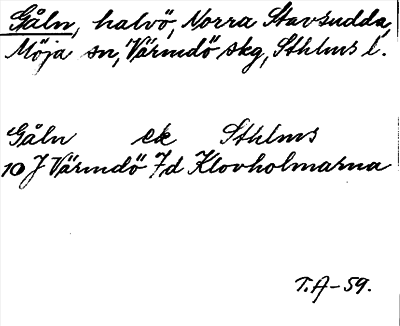 Gåln, halvö, Norra Stavsudda,
Möja sn, Värmdö skg, Sthlms l.
Gåln ek Sthlms
10 J Värmdö 7d Klovholmarna
T.A-59.